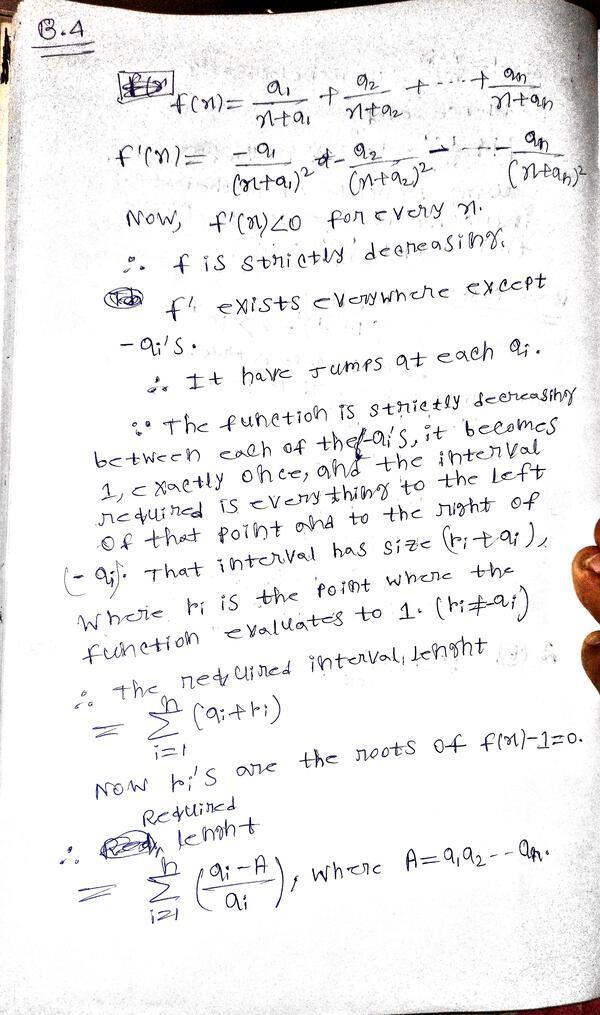 B.4
f(x) = a₁/(x+a₁) + a₂/(x+a₂) + ... + aₙ/(x+aₙ)
f'(x) = -a₁/(x+a₁)² - a₂/(x+a₂)² - ... - aₙ/(x+aₙ)²
Now, f'(x)<0 for every x.
∴ f is strictly decreasing.
f' exists everywhere except
-aᵢ's.
∴ It have Jumps at each aᵢ.
∵ The function is strictly decreasing
between each of the -aᵢ's, it becomes
1, exactly once, and the interval
required is everything to the left
of that point and to the right of
(-aᵢ). That interval has size (bᵢ+aᵢ),
where bᵢ is the point where the
function evaluates to 1. (bᵢ≠-aᵢ)
∴ The required interval, lenght
= Σᵢ₌₁ⁿ (aᵢ+bᵢ)
Now bᵢ's are the roots of f(x)-1=0.
Required
∴ lenght
= Σᵢ₌₁ⁿ ((aᵢ-A)/aᵢ), where A=a₁a₂--aₙ.